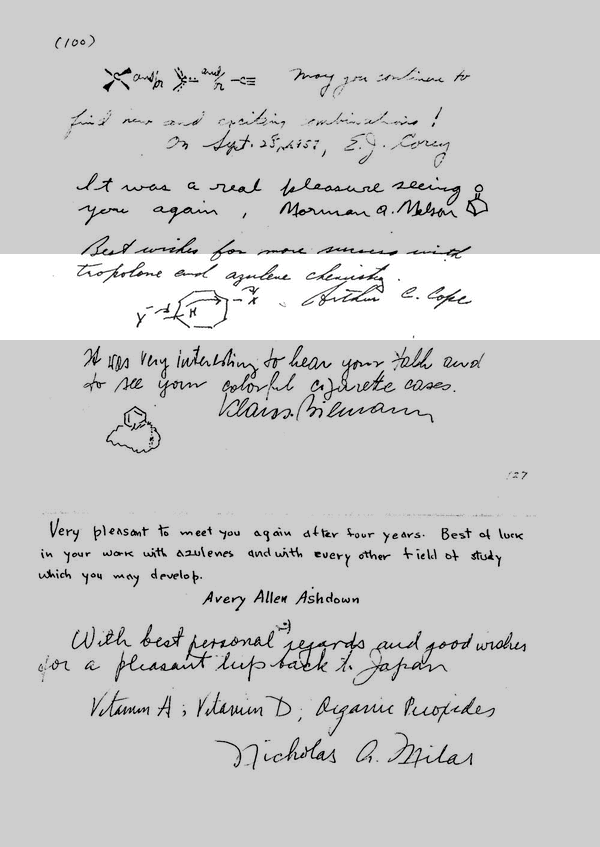 (100)
and/or and/or May you continue to
find new and exciting combinations!
On Sept. 28, 1957, E.J. Corey
It was a real pleasure seeing
you again, Norman A. Nelson
O
Best wishes for more success with
tropolone and azulene chemistry.
Arthur C. Cope
Y⁻ H X
It was very interesting to hear your talk and
to see your colorful cigarette cases.
Klaus Biemann
127
Very pleasant to meet you again after four years. Best of luck
in your work with azulenes and with every other field of study
which you may develop.
Avery Allen Ashdown
With best personal regards and good wishes
for a pleasant trip back to Japan
Vitamin A; Vitamin D; Organic Peroxides
Nicholas A. Milas